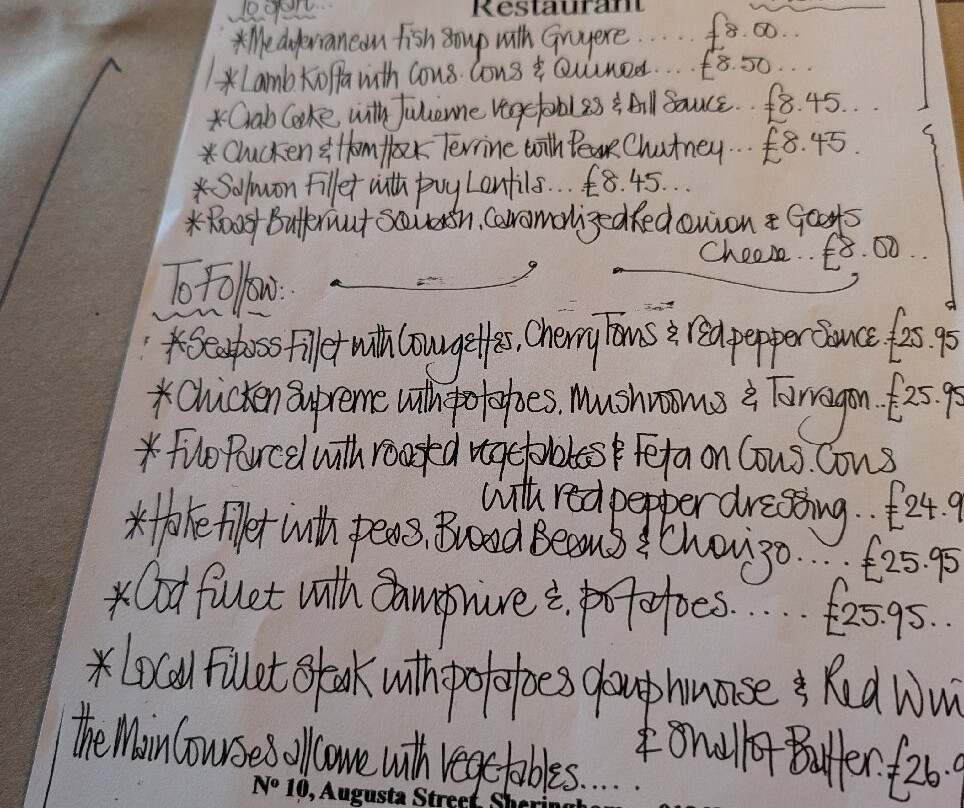 To Start...
Restaurant
*Mediterranean Fish Soup with Gruyere ..... £8.00..
*Lamb Kofta with Cous.Cous & Quinoa.... £8.50...
*Crab Cake with Julienne Vegetables & Dill Sauce.. £8.45...
*Chicken & Ham Hock Terrine with Pear Chutney... £8.45.
*Salmon Fillet with puy Lentils... £8.45...
*Roast Butternut Squash, Caramalized Red onion & Goats
Cheese.. £8.00..
To Follow:.
*Seabass Fillet with Courgettes, Cherry Toms & red pepper Sauce. £25.95
*Chicken Supreme with potatoes, Mushrooms & Tarragon.. £25.95
*Filo Parcel with roasted vegetables & Feta on Cous.Cous
with red pepper dressing.. £24.9
*Hake Fillet with peas, Broad Beans & Chorizo.... £25.95
*Cod fillet with Samphire &. potatoes..... £25.95..
*Local Fillet Steak with potatoes dauphinoise & Red Win
& Shallot Butter. £26.9
the Main Courses all come with vegetables.....
Nº 10, Augusta Street, Sheringham